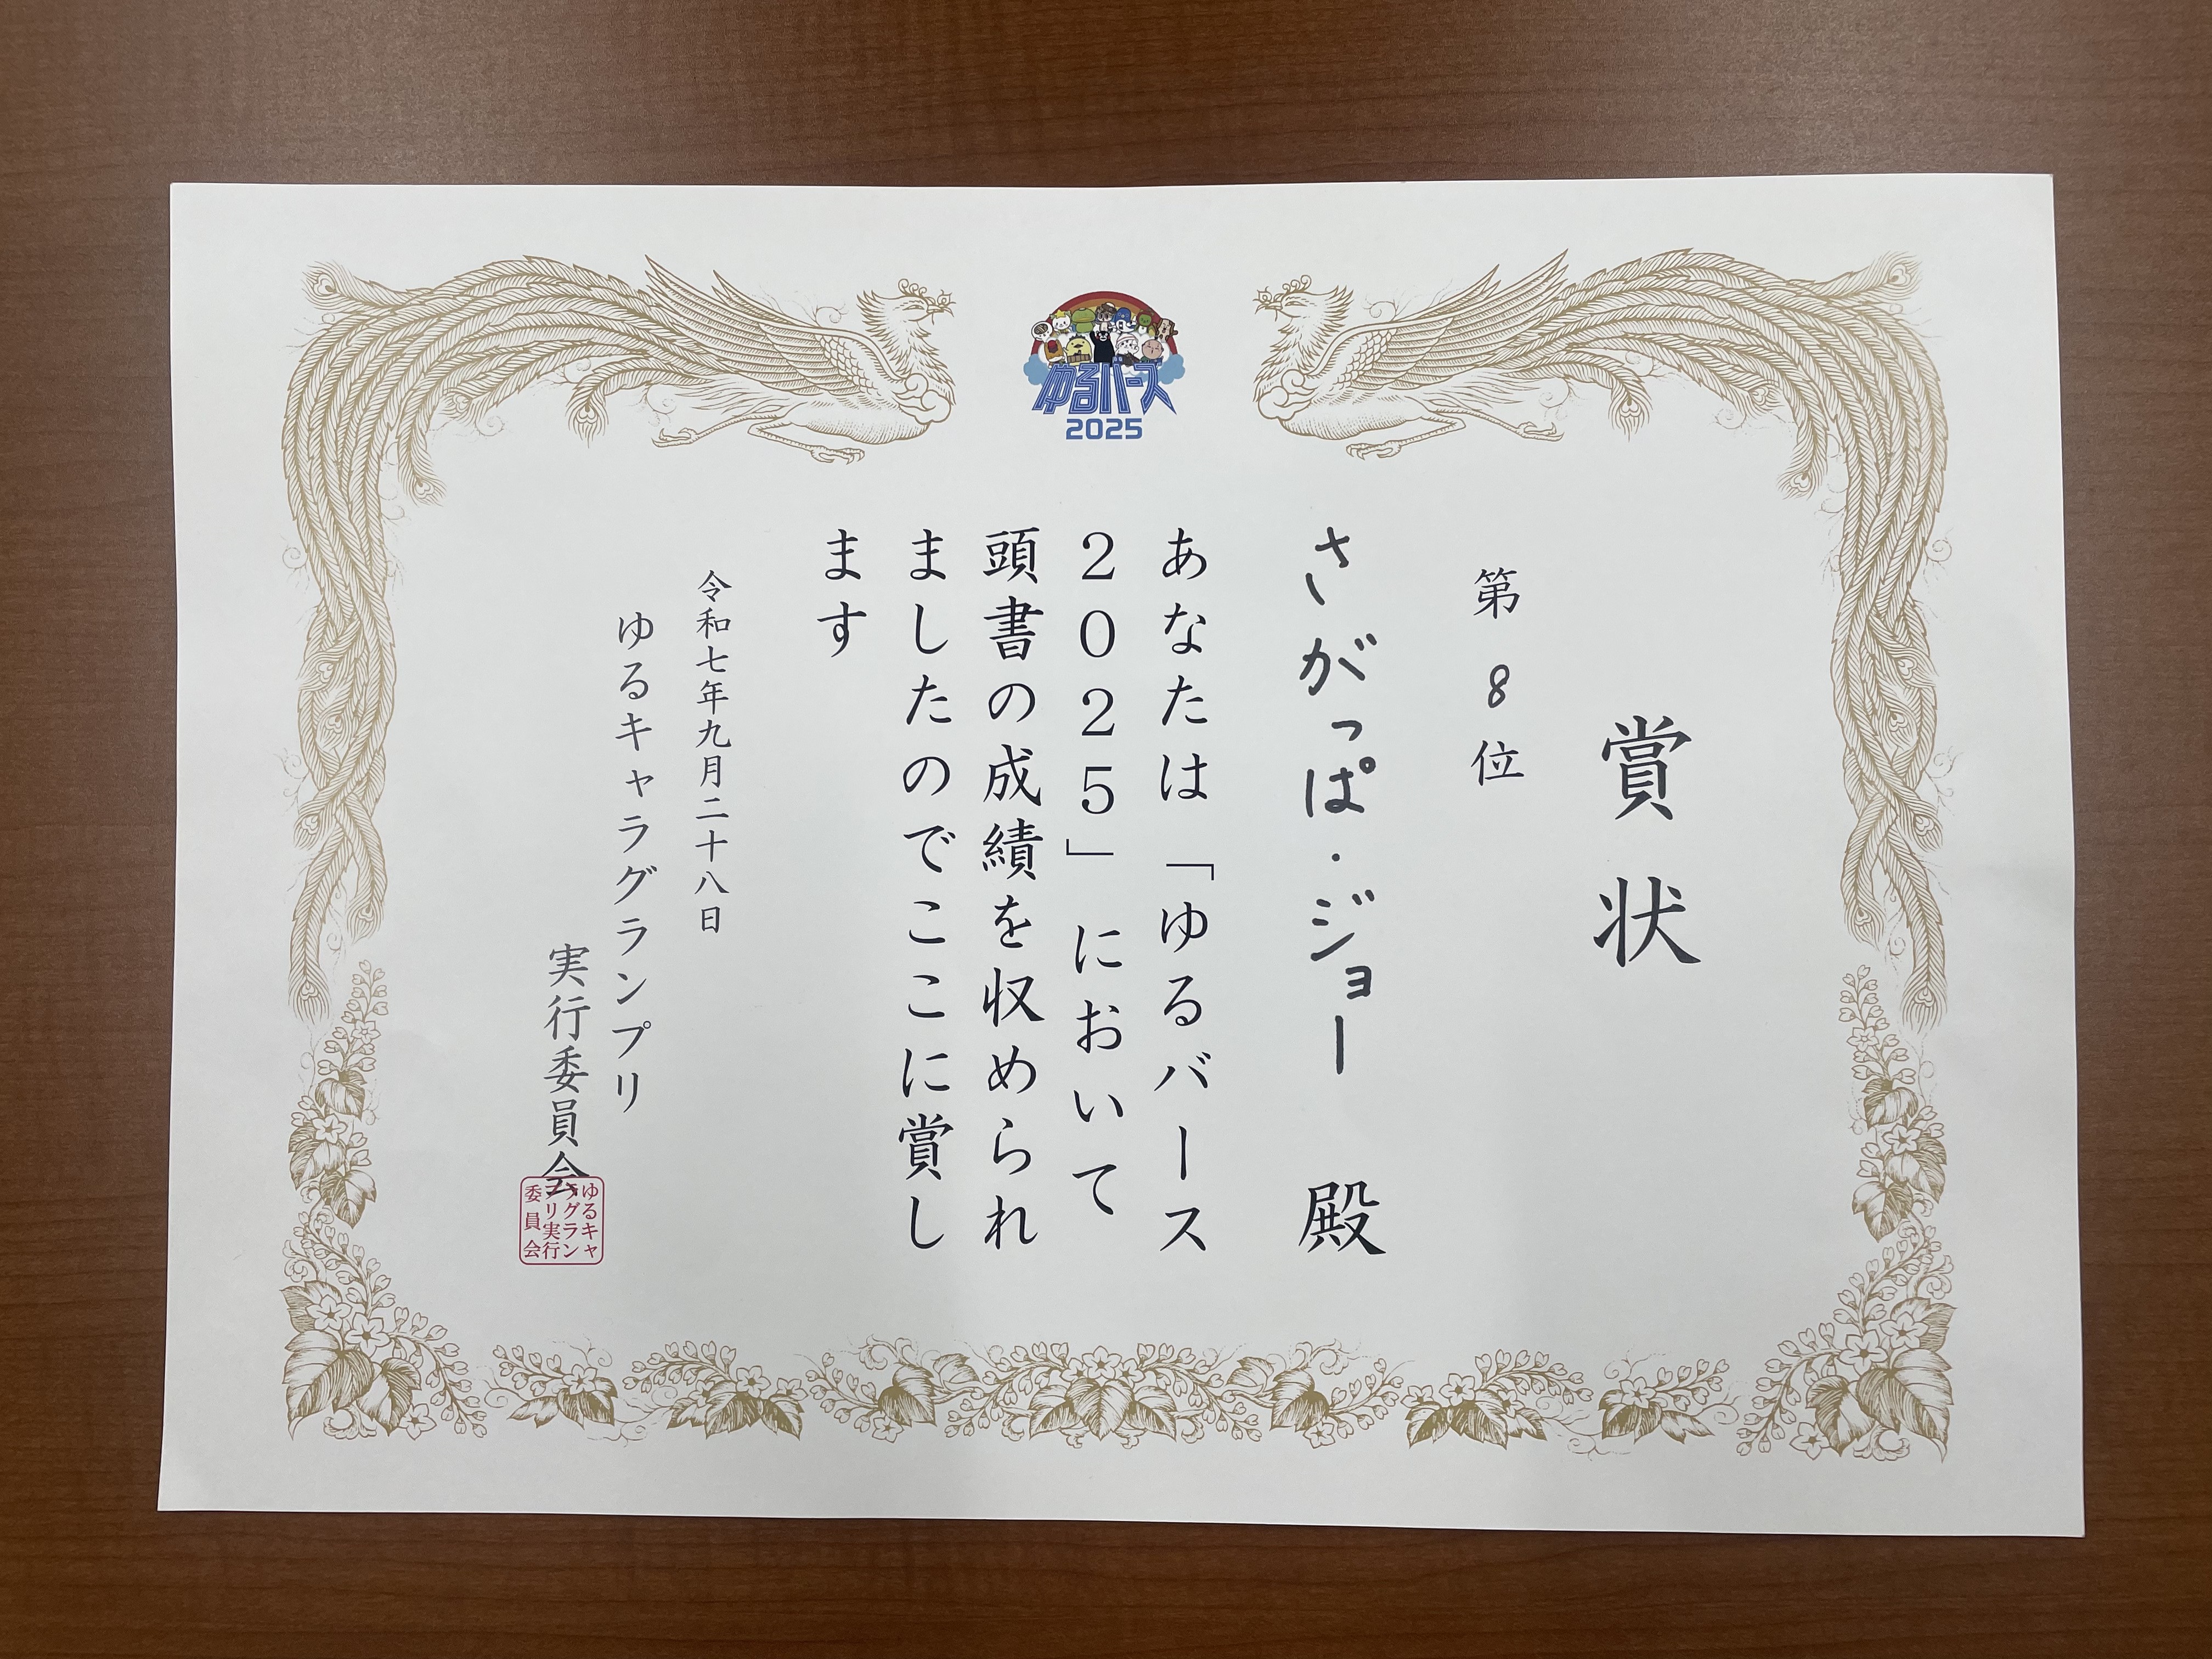 ゆるバース
2025
賞状
第8位
さがっぱ・ジョー 殿
あなたは「ゆるバース
2025」において
頭書の成績を収められ
ましたのでここに賞し
ます
令和七年九月二十八日
ゆるキャラグランプリ
実行委員会
ゆるキャ
ラグラン
プリ実行
委員会